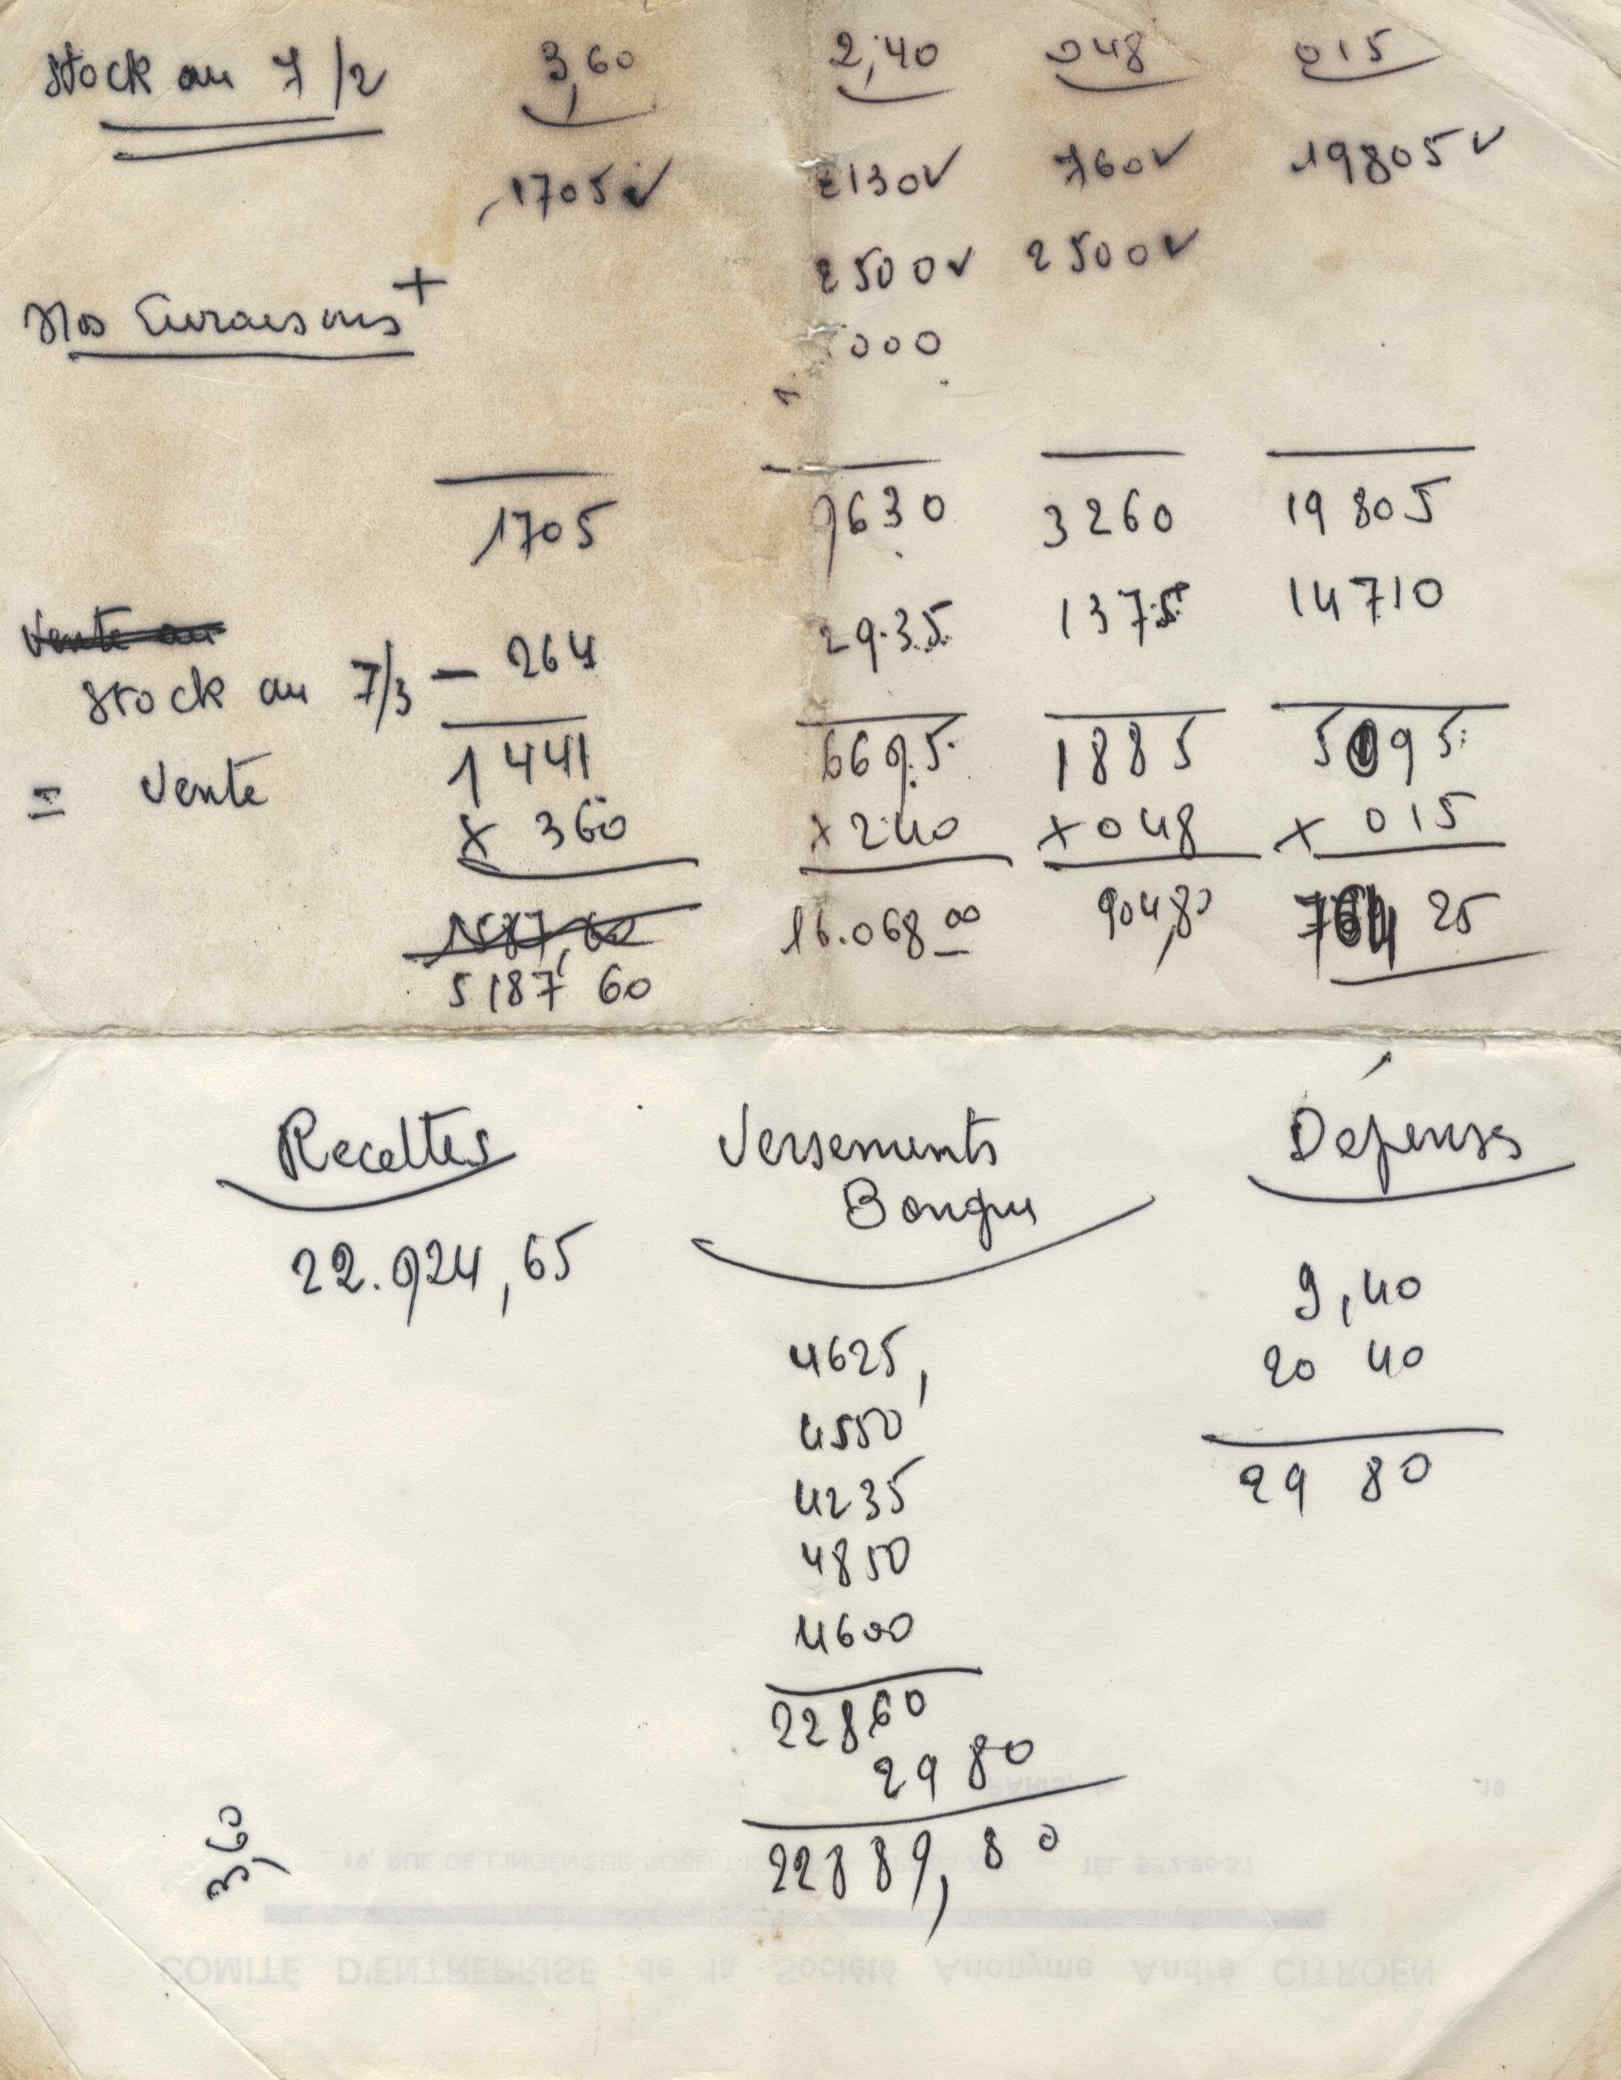 Stock au 7/2 3,60 2,40 048 015
1705✓ 2130✓ 760✓ 19805✓
2500✓ 2500✓
Nos Livraisons +
5000
1705 9630 3260 19805
Vente au
Stock au 7/3 – 264 2935 1375 14710
= Vente 1441 6695 1885 5095
x 360 x 240 x 048 x 015
1587,60 16.068 00 904,80 764 25
5187,60
Recettes Versements Dépenses
Banque
22.924,65
9,40
4625, 20 40
4550 29 80
4235
4850
4600
22860
29 80
22889,80
3,60
19, RUE DE L'INGENIEUR ROBERT
COMITÉ D'ENTREPRISE de la Société Anonyme André CITROËN